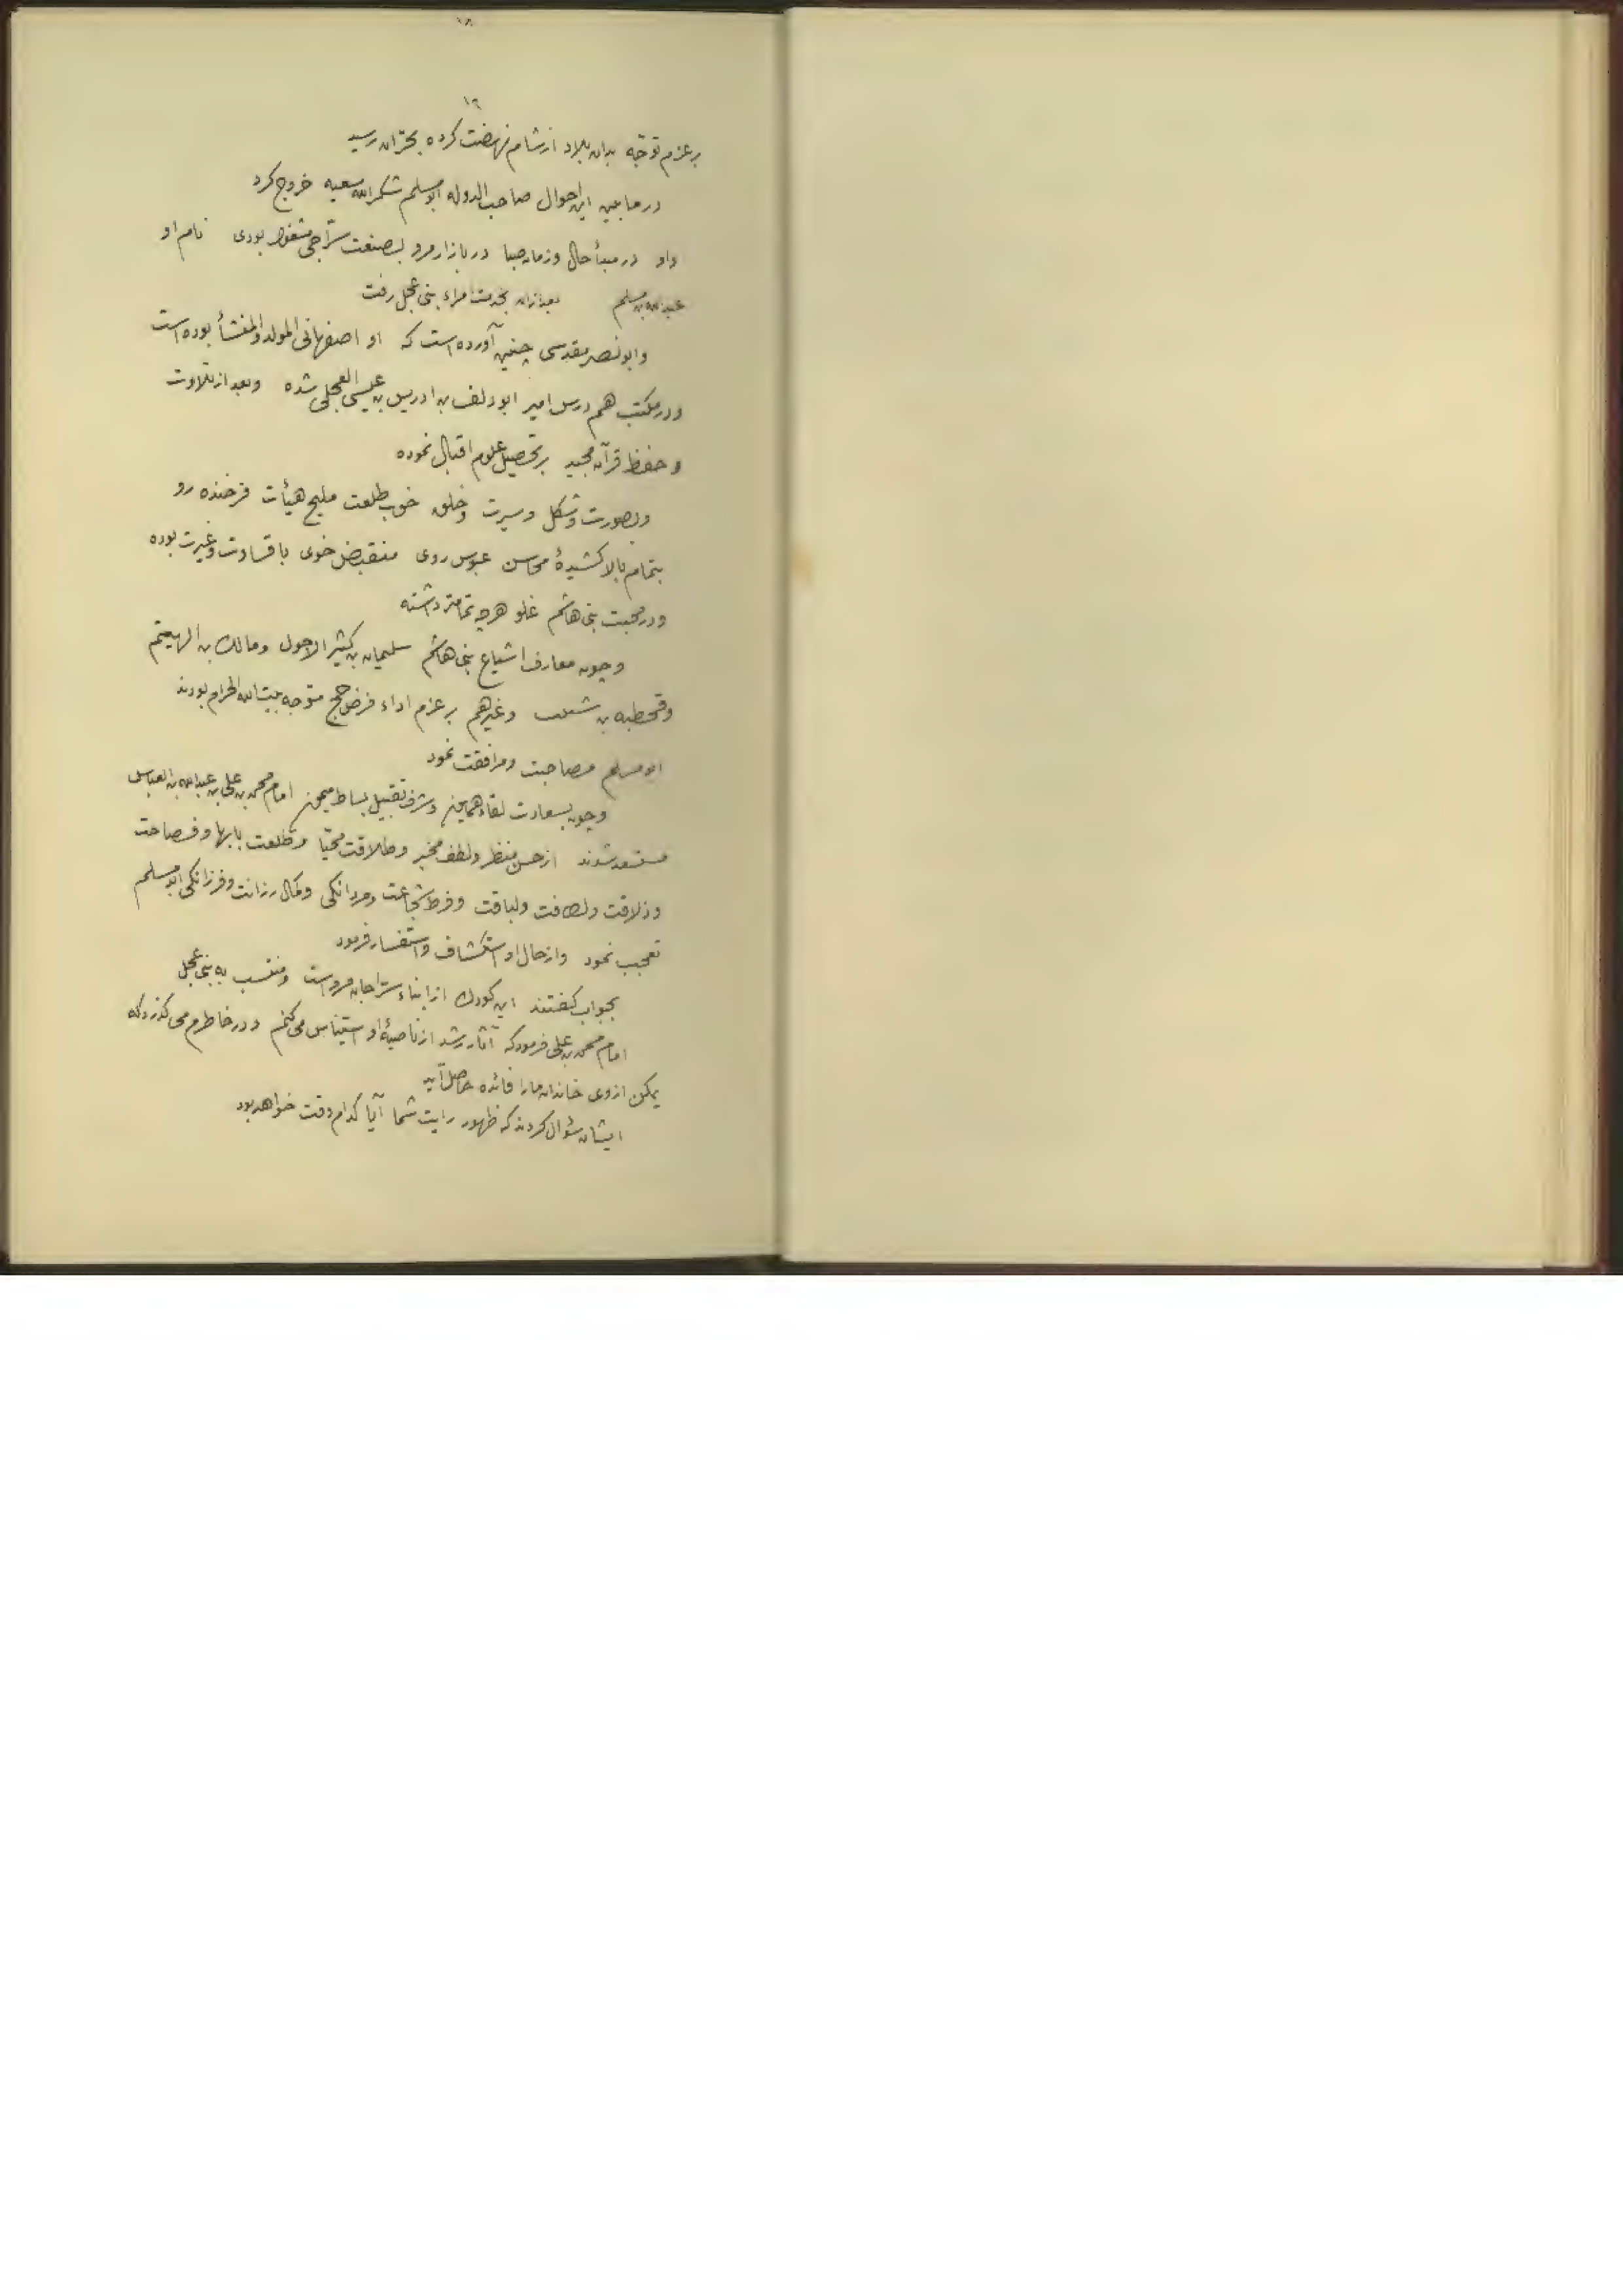 ١٨
١٦
برعزم توجّه بدان بلاد از شام نهضت کرده بحرّان رسید
در مابین این احوال صاحب الدوله ابومسلم شکر الله سعیه خروج کرد
واو در مبدأ حال وزمان صبا در بازار مرو بصنعت سرّاجی مشغول بودی نام او
عبدالله بن مسلم بعد از آن بخدمت امراء بنی عجل رفت
وابونصر مقدسی چنین آورده است که او اصفهانی المولد والمنشأ بوده است
ودر مکتب هم درس امیر ابودلف بن ادریس بن عیسی العجلی شده وبعد از تلاوت
وحفظ قرآن مجید برتحصیل علوم اقبال نموده
وبصورت وشکل وسیرت وخلق خوب طلعت ملیح هیأت فرخنده رو
بتمام بالا کشیدهٔ محاسن عبوس روی منقبض خوی با قساوت وغیرت بوده
ودر محبت بنی هاشم غلو هرچه تمامتر داشته
وچون معارف اشیاع بنی هاشم سلیمان بن کثیر الاحول ومالک بن الهیثم
وقحطبه بن شعیب وغیرهم برعزم اداء فرض حج متوجه بیت الله الحرام بودند
ابومسلم مصاحبت ومرافقت نمود
وچون بسعادت لقاء همایون وشرف تقبیل بساط میمون امام محمد بن علی بن عبدالله بن العباس
مستسعد شدند از حسن منظر ولطف مخبر وطلاقت محیّا وطلعت بابها وفصاحت
وذلاقت ولطافت ولباقت وفرط شجاعت ومردانکی وکمال رزانت وفرزانکی ابومسلم
تعجب نمود واز حال او استکشاف واستفسار فرمود
بجواب کفتند این کودک از ابناء سرّاجان مروست ومنتسب به بنی عجل
امام محمد بن علی فرمود که آثار رشد از ناصیهٔ او استیناس می کنم ودر خاطرم می کذرد که
یمکن از وی خاندان ما را فائده حاصل آید
ایشان سؤال کردند که ظهور رایت شما آیا کدام وقت خواهد بود